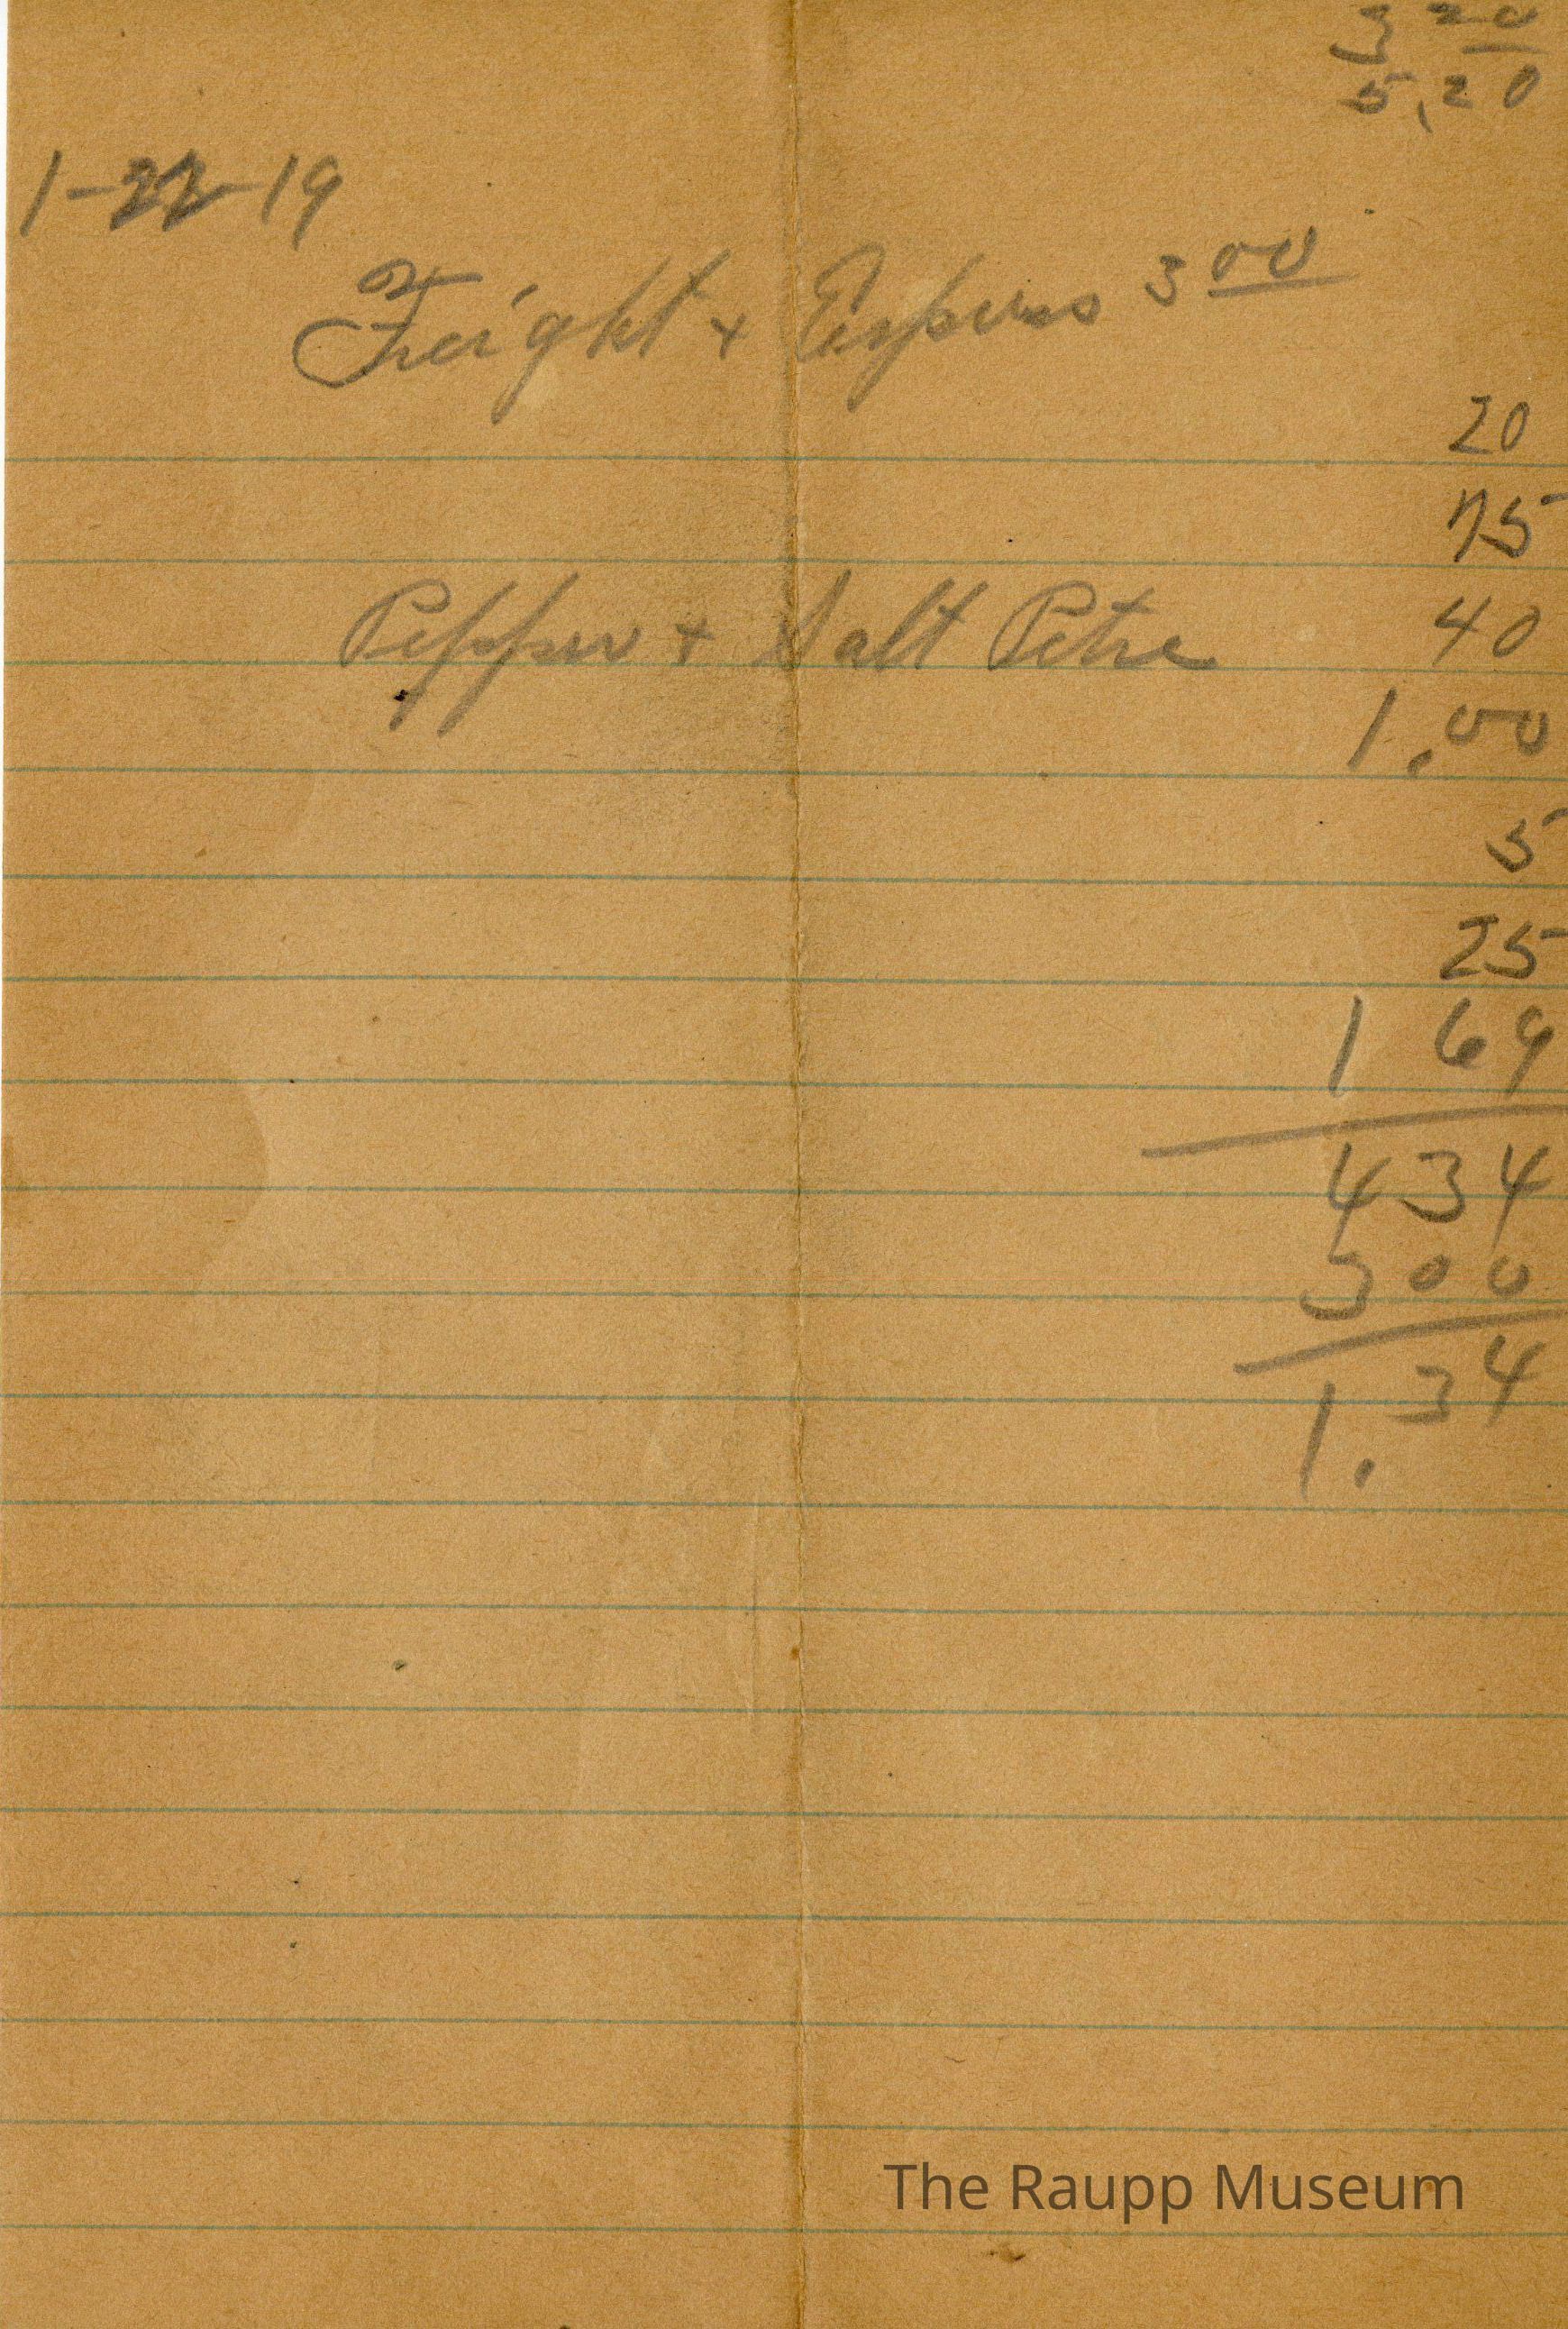 3 20
5,20
1-22-19
Freight + Express 3 00
20
75
Pepper + Salt Petre 40
1.00
5
25
1 69
4 34
3 00
1.34
The Raupp Museum